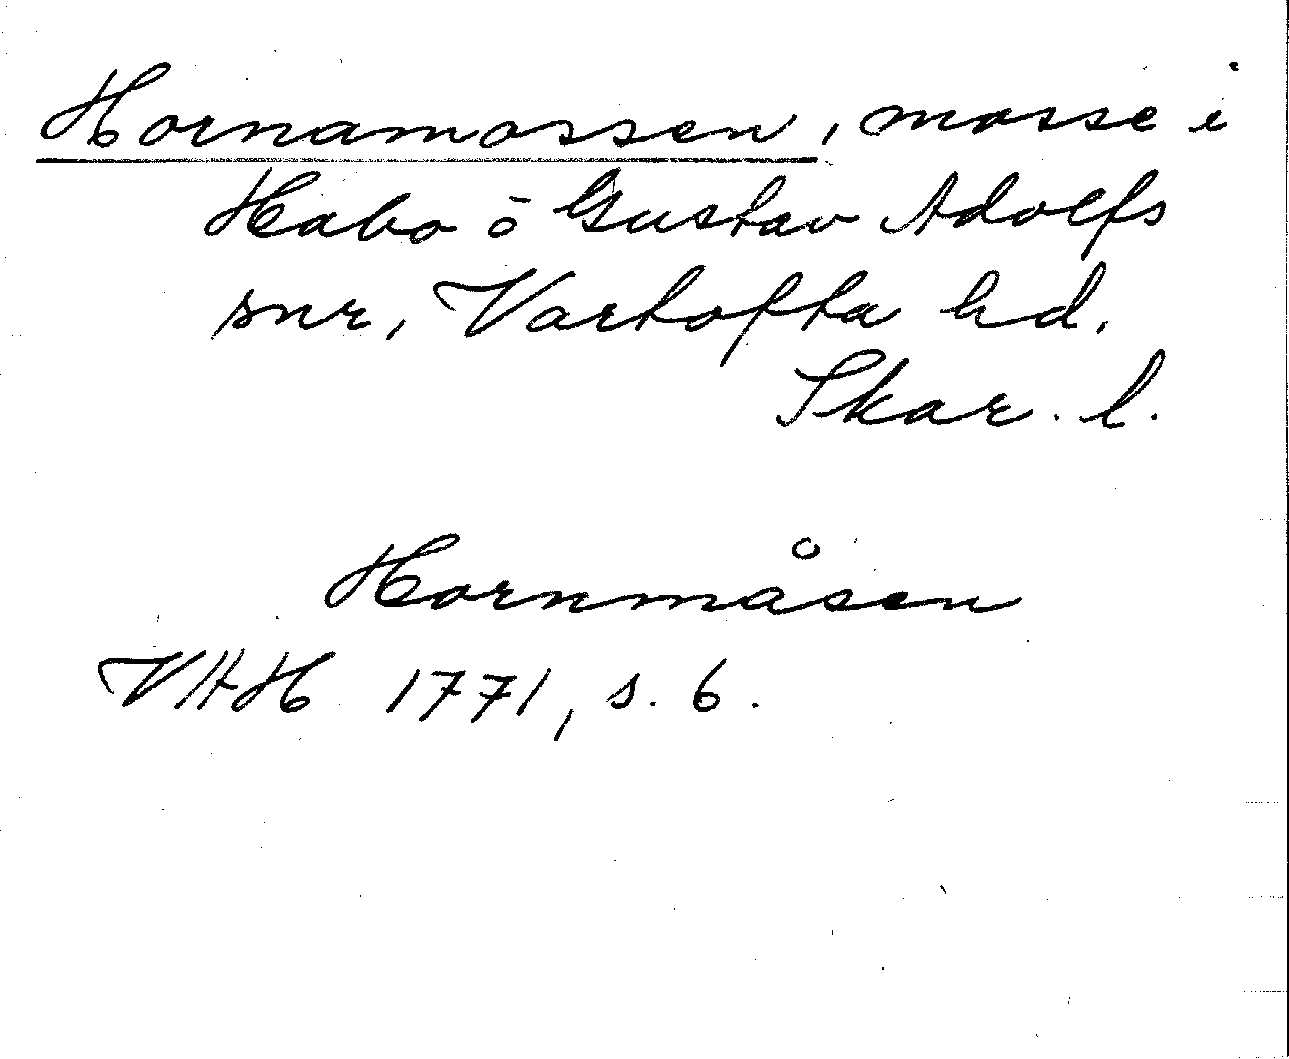 Hornamossen, mosse i
Habo o Gustav Adolfs
snr, Vartofta hd.
Skar. l.
Hornmåsen
VAH 1771, s. 6.